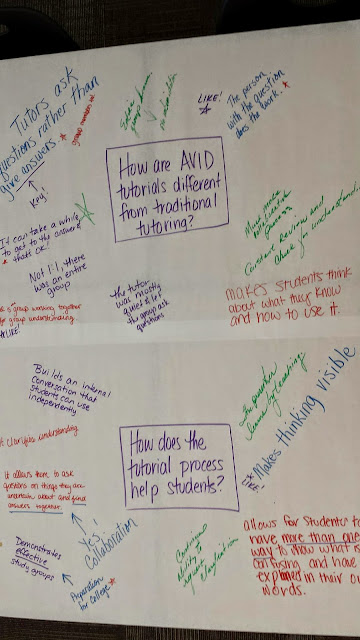 Tutors ask
questions rather than
give answers.
group members too!
Key!
It can take a while
to get to the answers
* that's ok!
Not 1:1 there
was an entire
group
group working together
group understanding.
LIKE!
LIKE!
The person
with the question
does the work. *
How are AVID
tutorials different
from traditional
tutoring?
the tutor
was mostly
quiet & let
the group ask
questions
collaborative
process
Constant Review and
understanding
makes students think
about what they know
and how to use it.
Builds an internal
conversation that
students can use
independently
clarifies understanding
It allows them to ask
questions on things they are
uncertain about and find
answers together.
Yes!
Collaboration
Demonstrates
effective
study groups
Preparation
for College *
How does the
tutorial process
help students?
learning
Makes thinking visible
LIKE!
Continual
ability to
clarification
allows for students to
have more than one
way to show what is
confusing and have
explained in their own
words.